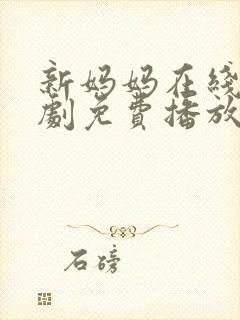 新妈妈在线
劇免費播放
石磅